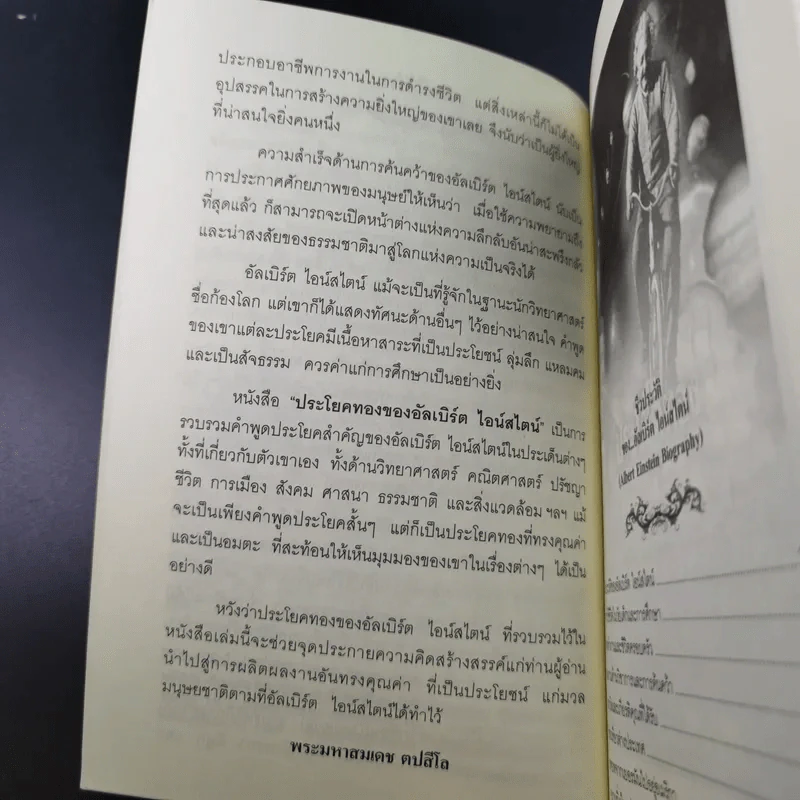 ประกอบอาชีพการงานในการดำรงชีวิต แต่สิ่งเหล่านี้ก็ไม่ได้เป็น
อุปสรรคในการสร้างความยิ่งใหญ่ของเขาเลย จึงนับว่าเป็นผู้ยิ่งใหญ่
ที่น่าสนใจยิ่งคนหนึ่ง
ความสำเร็จด้านการค้นคว้าของอัลเบิร์ต ไอน์สไตน์ นับเป็น
การประกาศศักยภาพของมนุษย์ให้เห็นว่า เมื่อใช้ความพยายามถึง
ที่สุดแล้ว ก็สามารถจะเปิดหน้าต่างแห่งความลึกลับอันน่าสะพรึงกลัว
และน่าสงสัยของธรรมชาติมาสู่โลกแห่งความเป็นจริงได้
อัลเบิร์ต ไอน์สไตน์ แม้จะเป็นที่รู้จักในฐานะนักวิทยาศาสตร์
ชื่อก้องโลก แต่เขาก็ได้แสดงทัศนะด้านอื่นๆ ไว้อย่างน่าสนใจ คำพูด
ของเขาแต่ละประโยคมีเนื้อหาสาระที่เป็นประโยชน์ ลุ่มลึก แหลมคม
และเป็นสัจธรรม ควรค่าแก่การศึกษาเป็นอย่างยิ่ง
หนังสือ "ประโยคทองของอัลเบิร์ต ไอน์สไตน์" เป็นการ
รวบรวมคำพูดประโยคสำคัญของอัลเบิร์ต ไอน์สไตน์ในประเด็นต่างๆ
ทั้งที่เกี่ยวกับตัวเขาเอง ทั้งด้านวิทยาศาสตร์ คณิตศาสตร์ ปรัชญา
ชีวิต การเมือง สังคม ศาสนา ธรรมชาติ และสิ่งแวดล้อม ฯลฯ แม้
จะเป็นเพียงคำพูดประโยคสั้นๆ แต่ก็เป็นประโยคทองที่ทรงคุณค่า
และเป็นอมตะ ที่สะท้อนให้เห็นมุมมองของเขาในเรื่องต่างๆ ได้เป็น
อย่างดี
หวังว่าประโยคทองของอัลเบิร์ต ไอน์สไตน์ ที่รวบรวมไว้ใน
หนังสือเล่มนี้จะช่วยจุดประกายความคิดสร้างสรรค์แก่ท่านผู้อ่าน
นำไปสู่การผลิตผลงานอันทรงคุณค่า ที่เป็นประโยชน์ แก่มวล
มนุษยชาติตามที่อัลเบิร์ต ไอน์สไตน์ได้ทำไว้
พระมหาสมเดช ตปสีโล
ชีวประวัติ
ดร.อัลเบิร์ต ไอน์สไตน์
(Albert Einstein Biography)